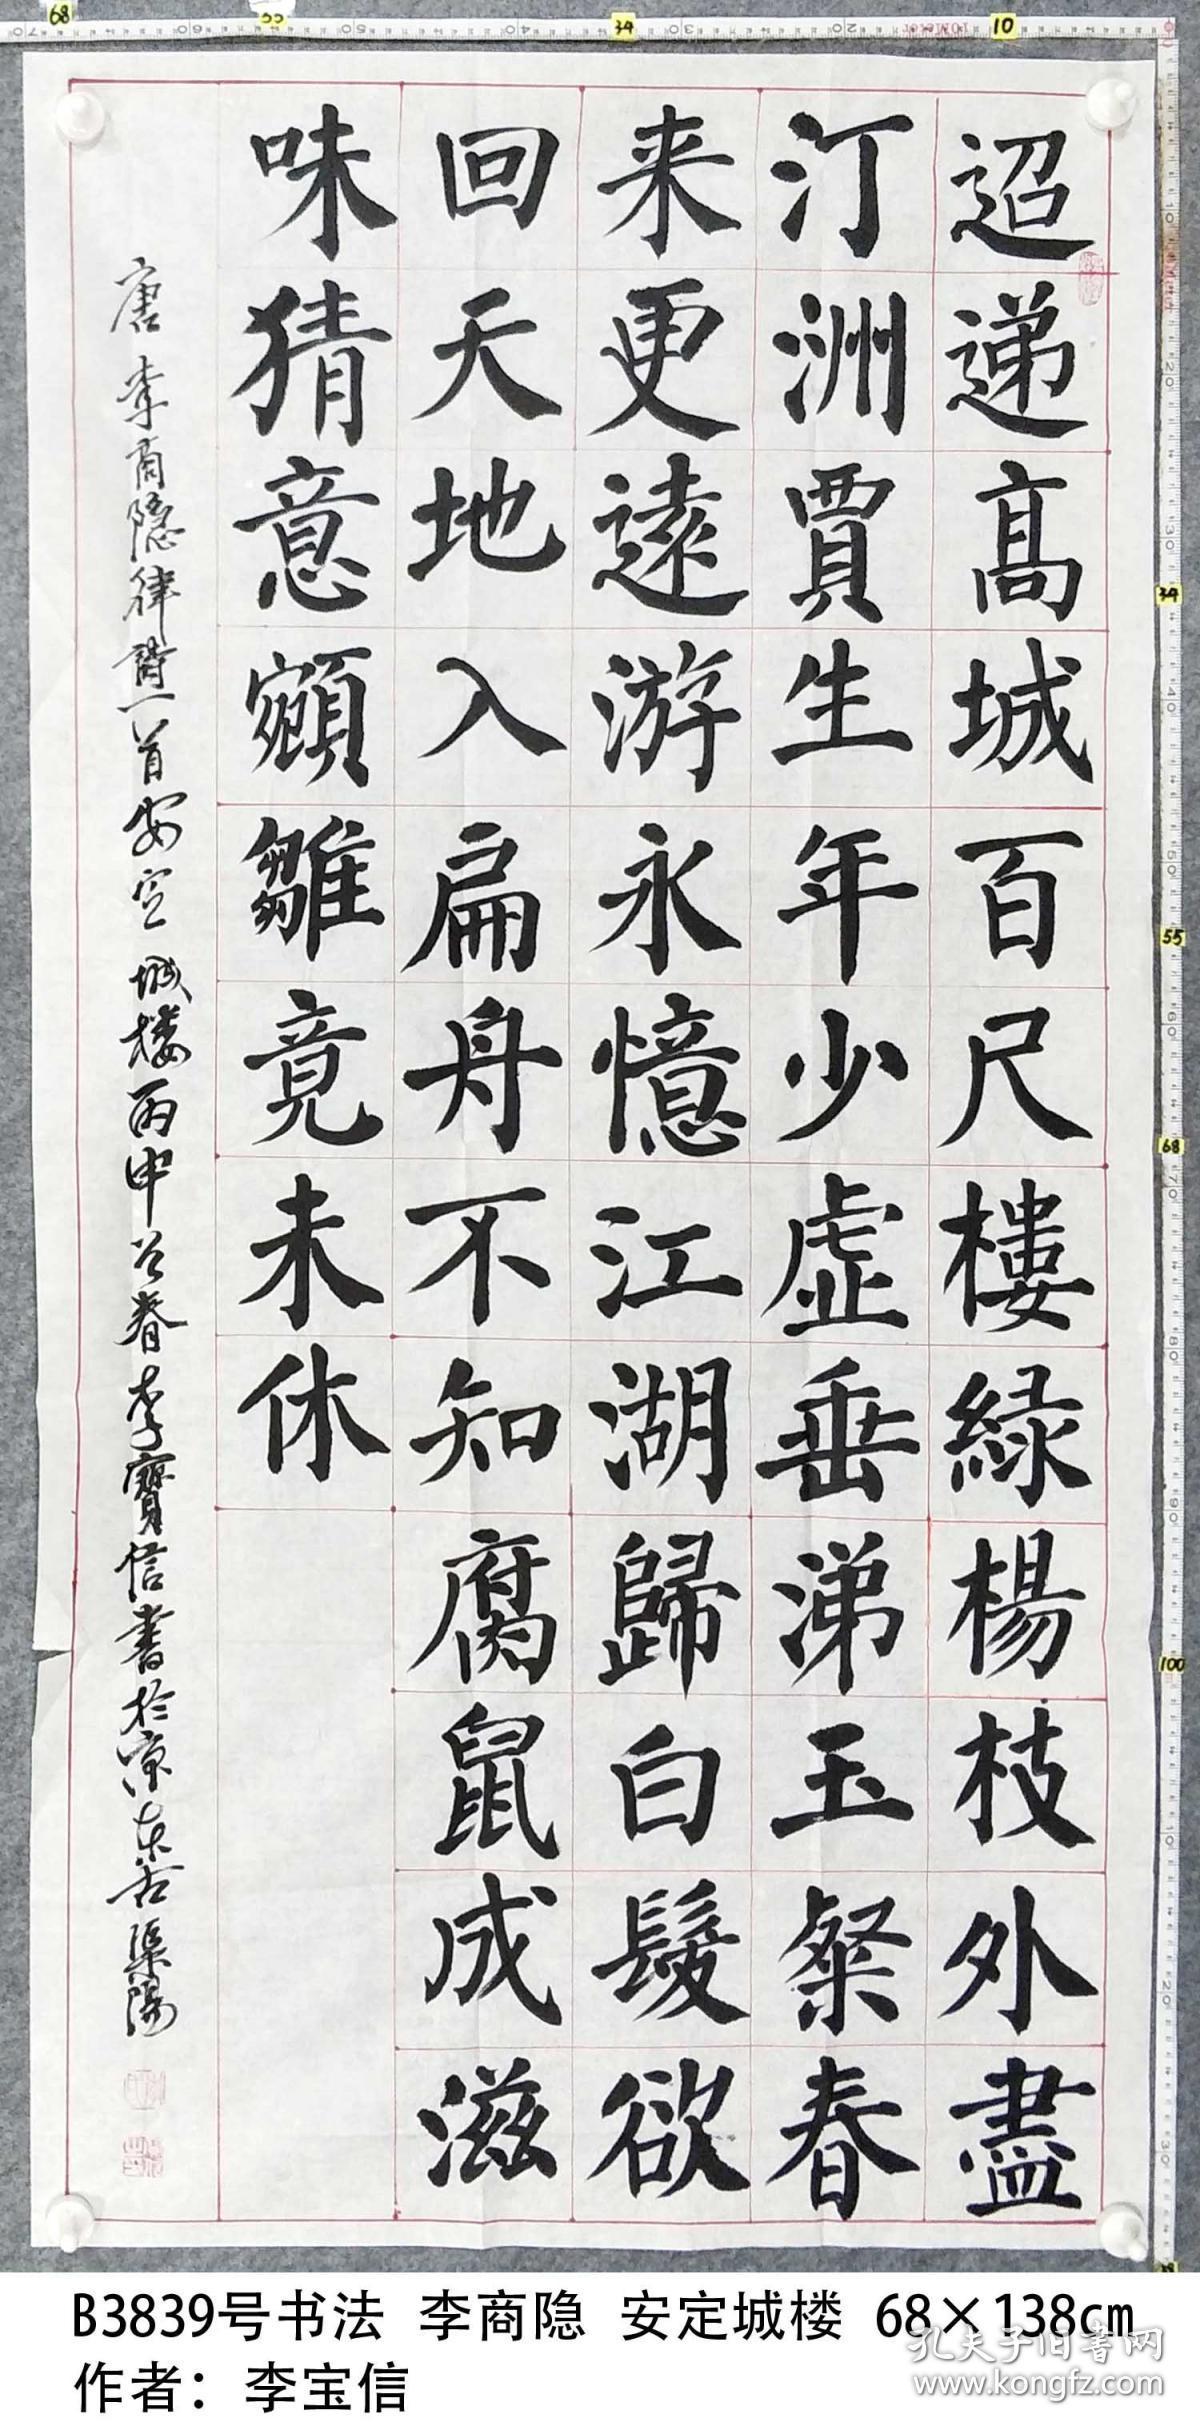 68 55 34 10
34
55
68
100
迢递髙城百尺樓緑楊枝外盡
汀洲賈生年少虚垂涕玉粲春
来更遠游永憶江湖歸白髮欲
回天地入扁舟不知腐鼠成滋
味猜意雛竟未休
唐李商隐律詩一首安定城楼丙申之春李寶信書於京东古渠陽
B3839号书法 李商隐 安定城楼 68×138cm
作者：李宝信
孔夫子旧书网
www.kongfz.com